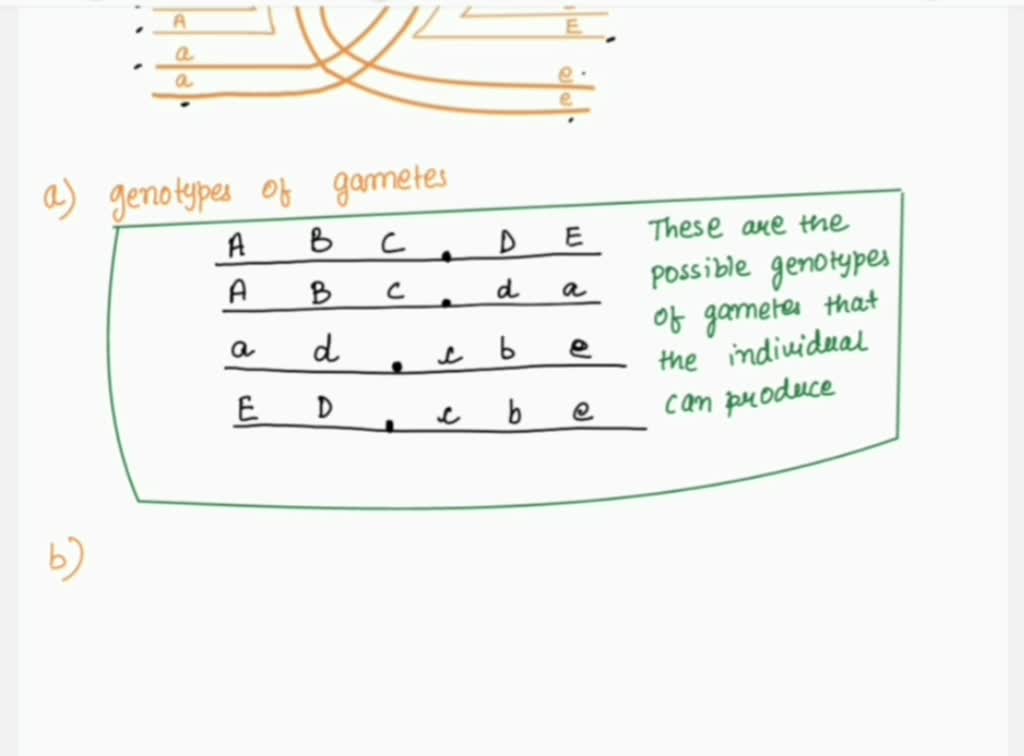 A
E
a
a
e
e
a) genotypes of gametes
A B C . D E
A B c . d a
a d . c b e
E D . c b e
These are the
possible genotypes
of gametes that
the individual
can produce
b)